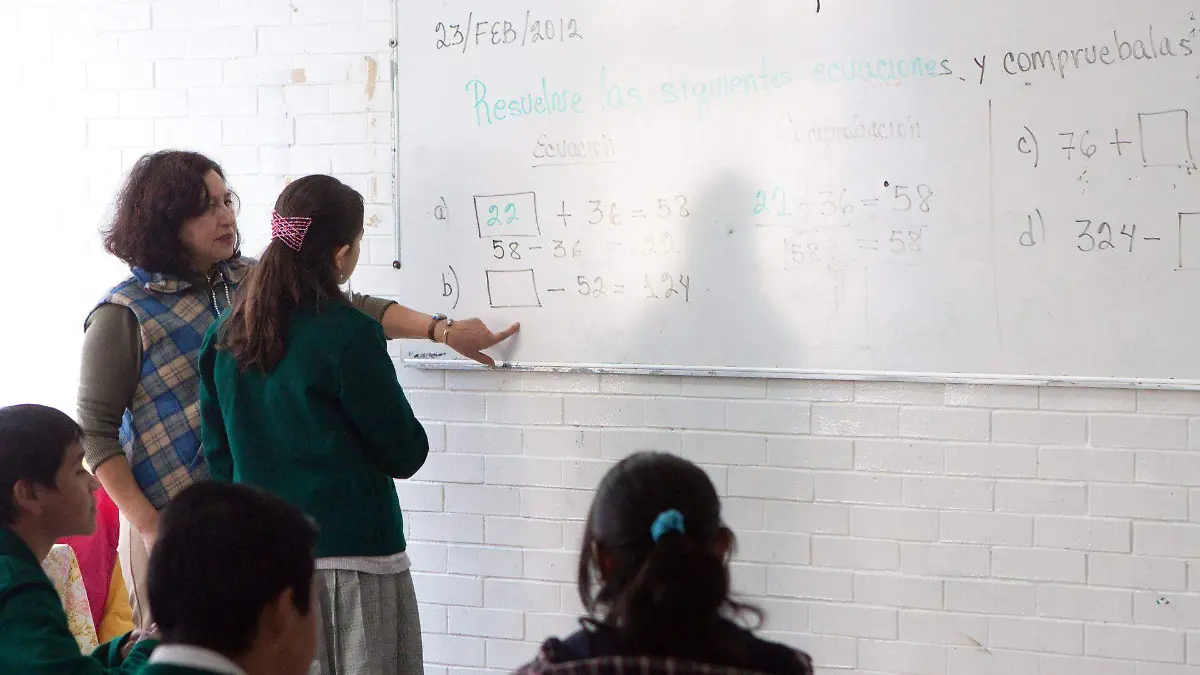 23/FEB/2012
Resuelve las siguientes ecuaciones, y compruebalas
Ecuación
Comprobación
a) 22 + 36 = 58
58 - 36 = 22
b) - 52 = 124
22 + 36 = 58
58 = 58
c) 76 +
d) 324 -